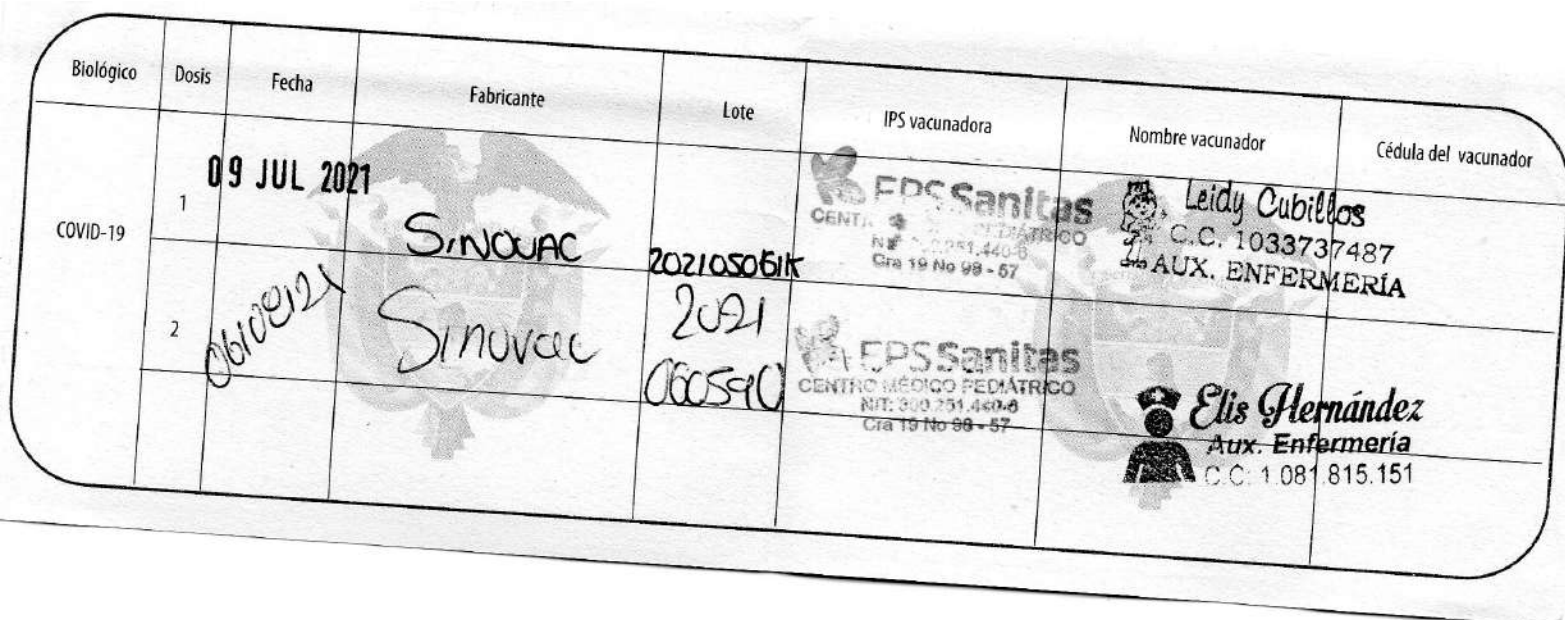 Biológico Dosis Fecha Fabricante Lote IPS vacunadora Nombre vacunador Cédula del vacunador
COVID-19
1
09 JUL 2021
SINOVAC
EPS Sanitas
CENTR PEDIÁTRICO
251.440-6
Cra 19 No 98 - 57
Leidy Cubillos
C.C. 1033737487
AUX. ENFERMERÍA
2
06/08/21
Sinovac
2021
060590
EPS Sanitas
CENTRO MÉDICO PEDIÁTRICO
NIT: 800.251.440-6
Cra 19 No 98 - 57
Elis Hernández
Aux. Enfermería
C.C: 1.081.815.151